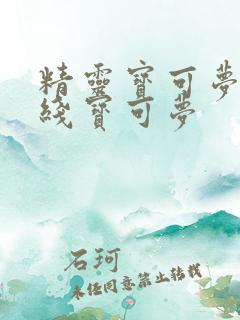 精靈寶可夢
綫寶可夢
石珂
未经同意禁止转载